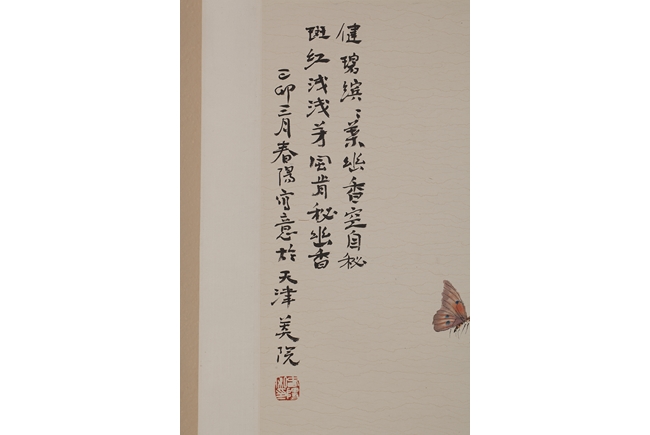 健碧缤〻葉幽香空自秘
斑红浅浅芽风肯秘幽香
己卯三月春陽写意於天津美院